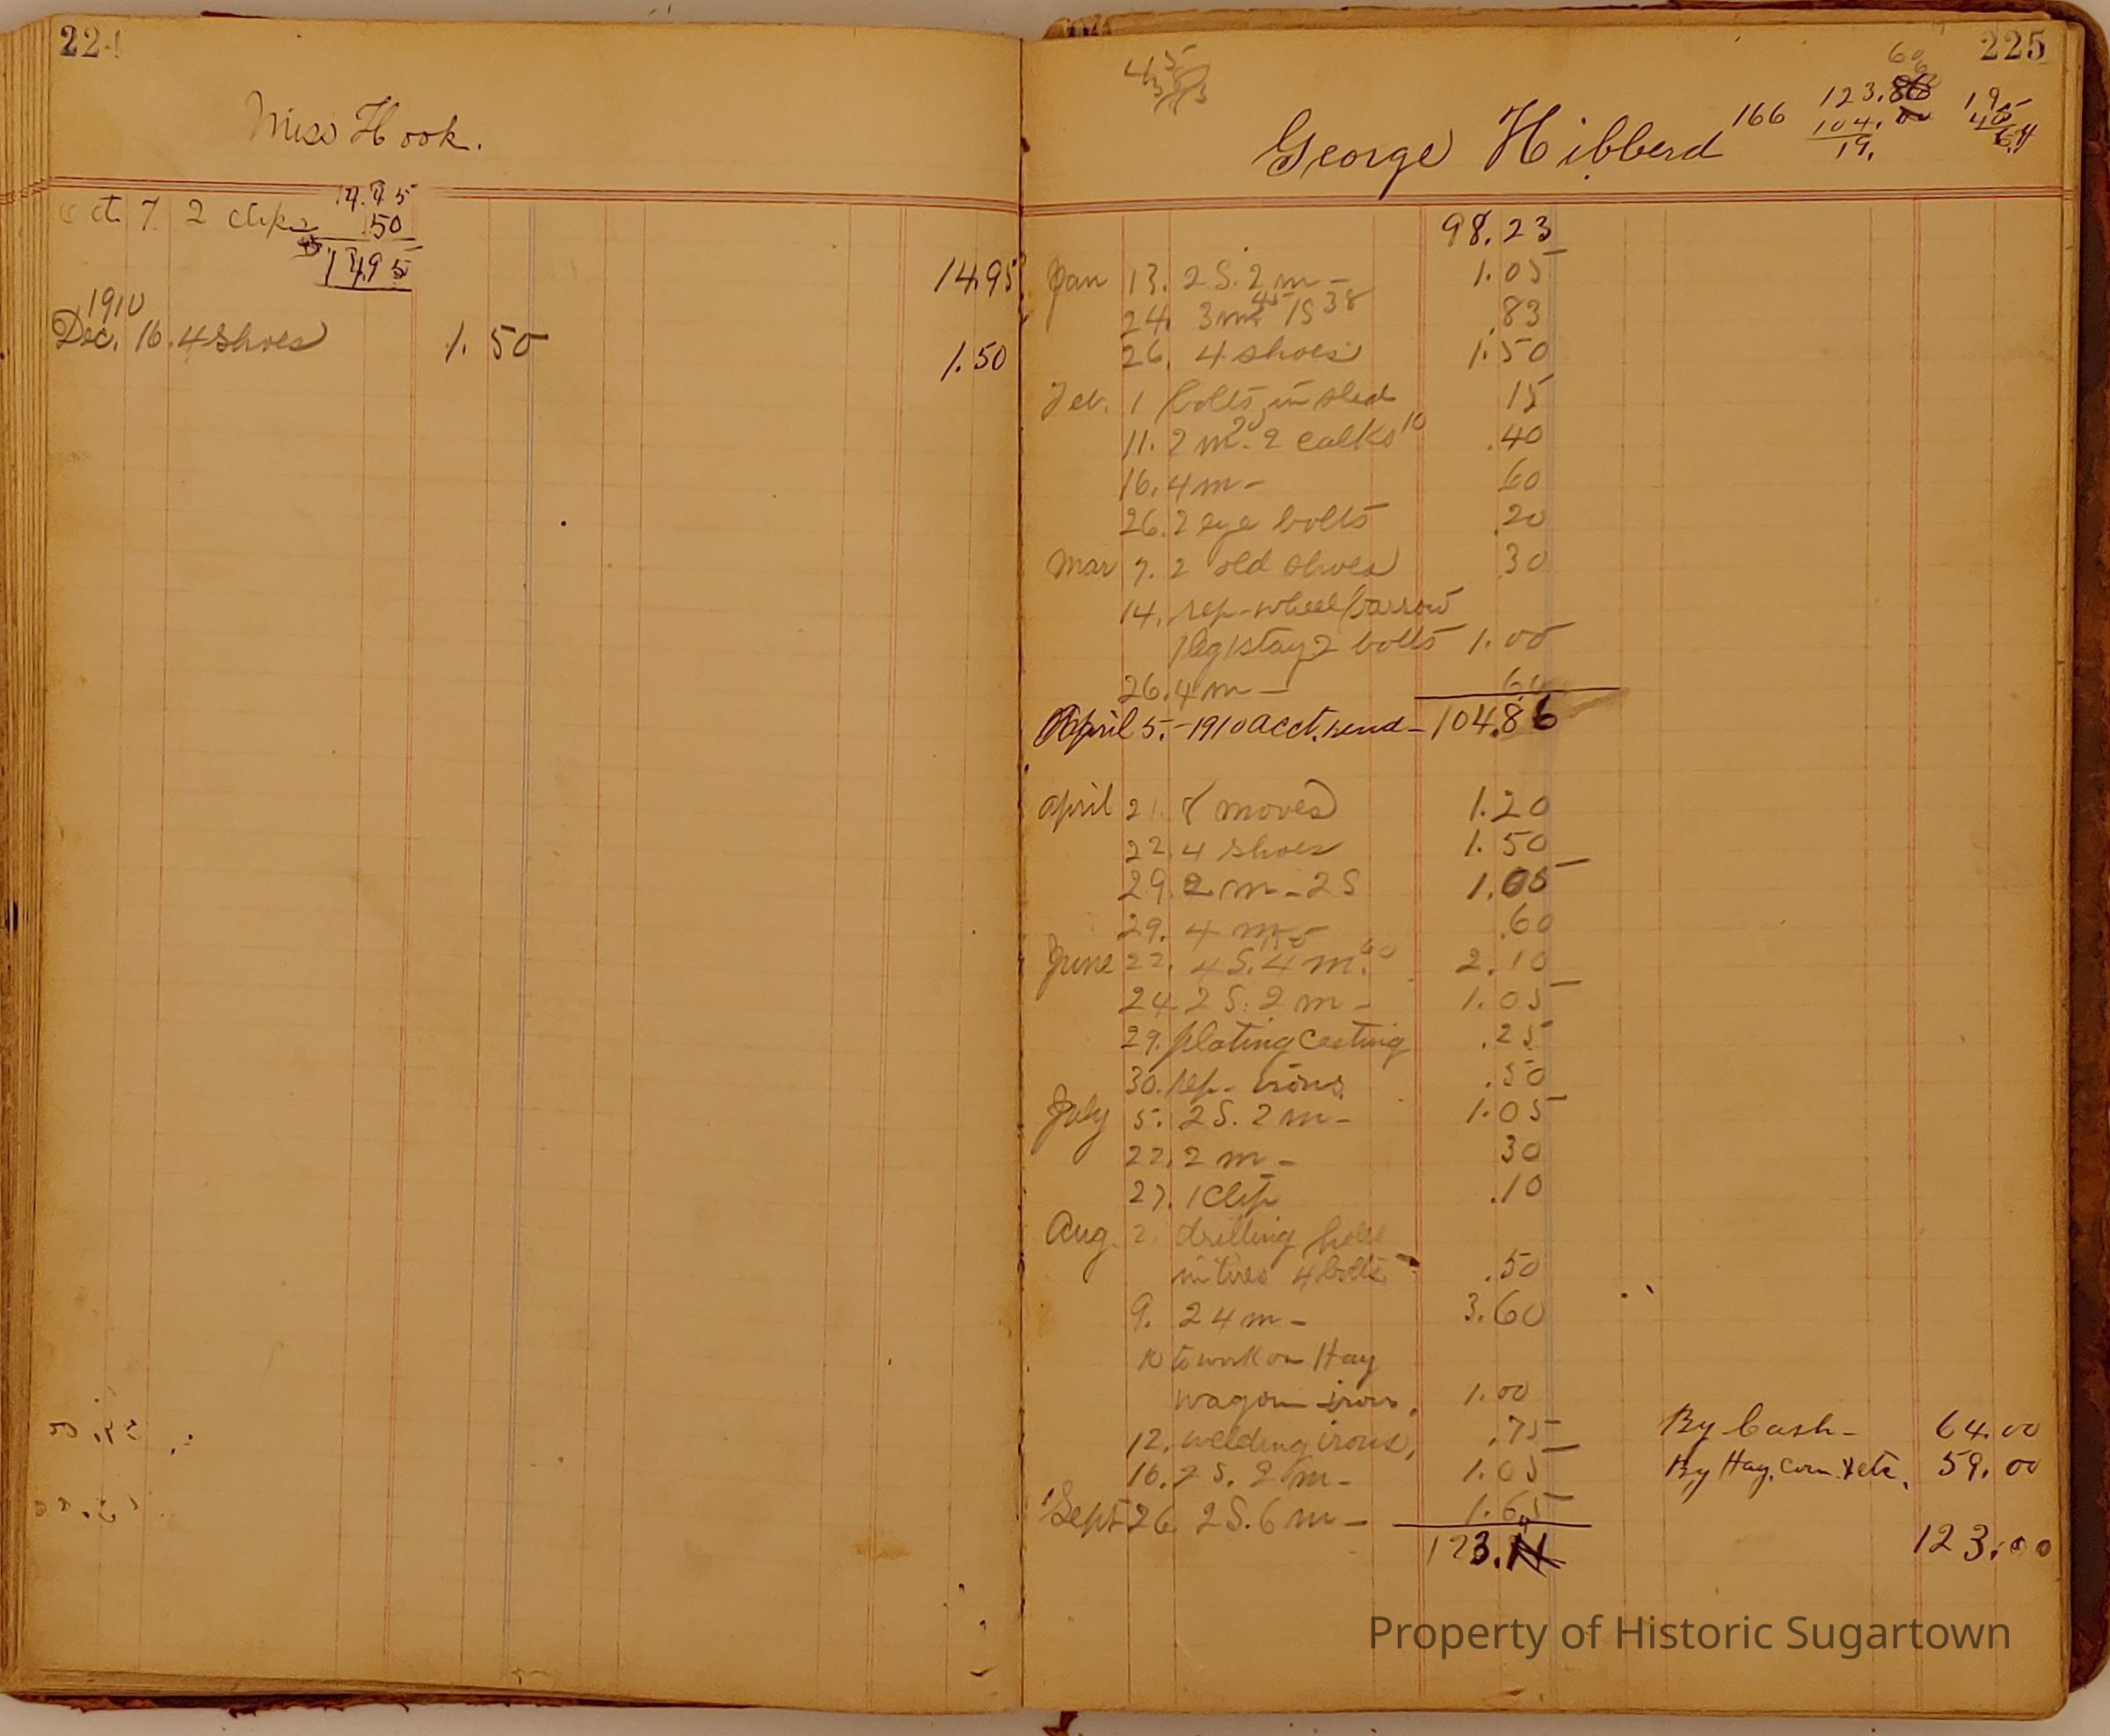 224
Miss Hook.
14.45
Oct. 7 2 clips .50
14.95
14.95
1910
Dec. 16. 4 shoes 1.50 1.50
225
George Hibberd 166
123.
104.
19.
98.23
Jan 13. 2 S. 2 m - 1.05
24. 3 m 45 1 S 38 .83
26. 4 shoes 1.50
Feb. 1 bolts in sled 15
11. 2 m 20 - 2 calks 10 .40
16. 4 m - 60
26. 2 eye bolts 20
Mar 7. 2 old shoes 30
14. rep - wheelbarrow
1 leg 1 stay 2 bolts 1.00
26. 4 m - 60
April 5. - 1910 acct. send - 104.86
April 21. 8 moves 1.20
22. 4 shoes 1.50
29. 2 m - 2 S 1.05
29. 4 m - .60
June 22. 4 S. 4 m. 60 2.10
24 2 S. 2 m - 1.05
29. plating casting .25
30. rep - irons. .50
July 5. 2 S. 2 m - 1.05
22. 2 m - 30
27. 1 clip .10
Aug. 2. drilling hole
in tires 4 bolts .50
9. 24 m - 3.60
10 to work on Hay
wagon irons, 1.00
12. welding irons, .75
16. 2 S. 2 m - 1.05
Sept 26 2 S. 6 m - 1.65
123.
By Cash - 64.00
By Hay, Corn & etc. 59.00
123.00
Property of Historic Sugartown